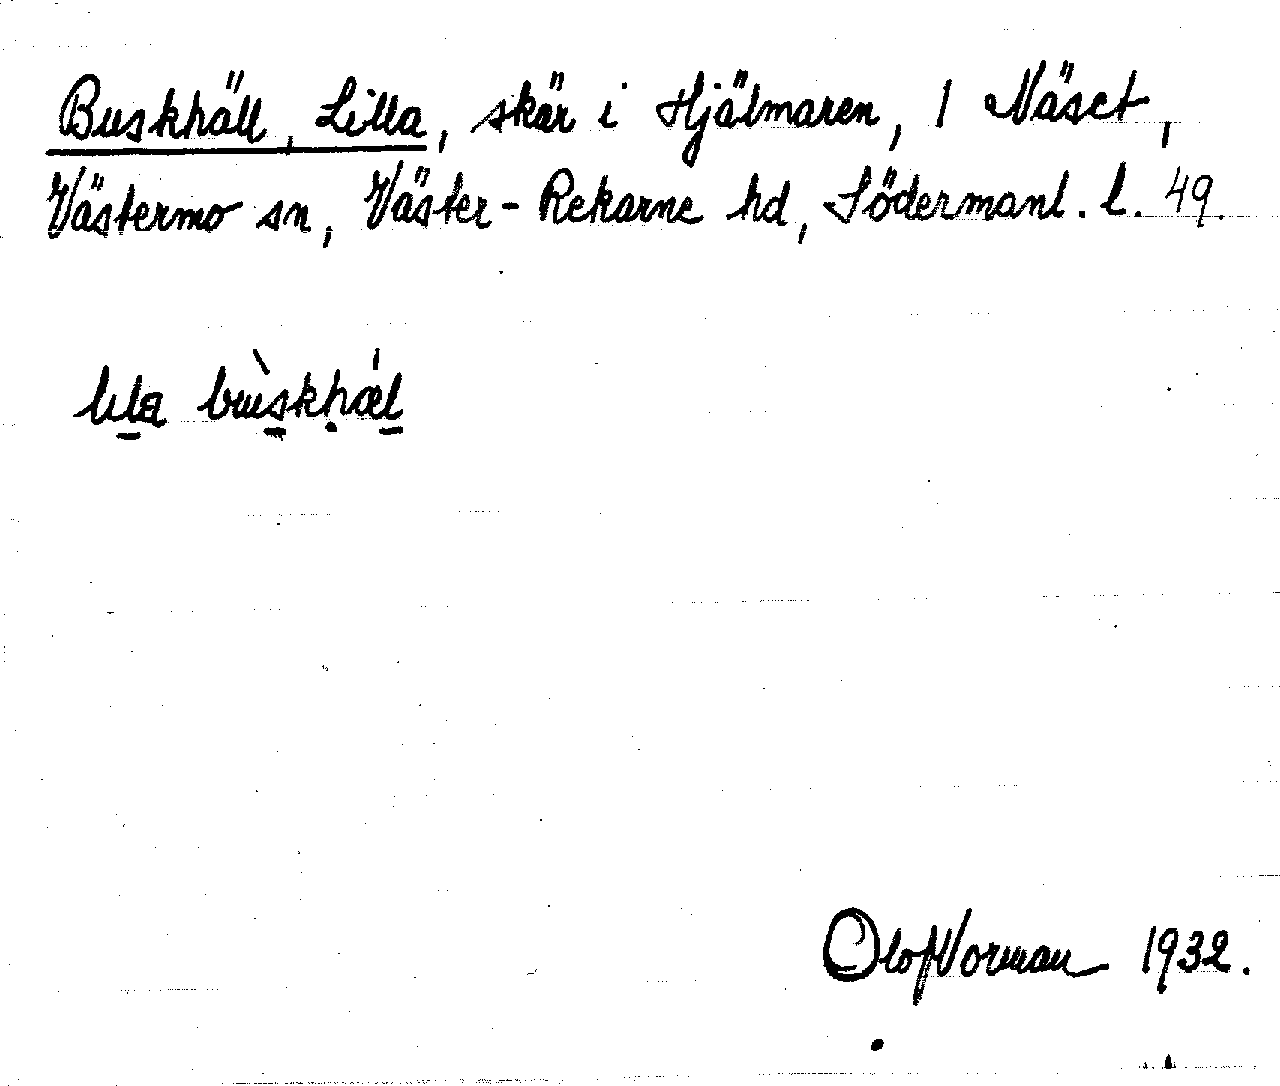 Buskhäll, Lilla, skär i Hjälmaren, 1 Näset,
Västermo sn, Väster-Rekarne hd, Södermanl. l. 49.
lila bùskhæ̍l
Olof Norman 1932.